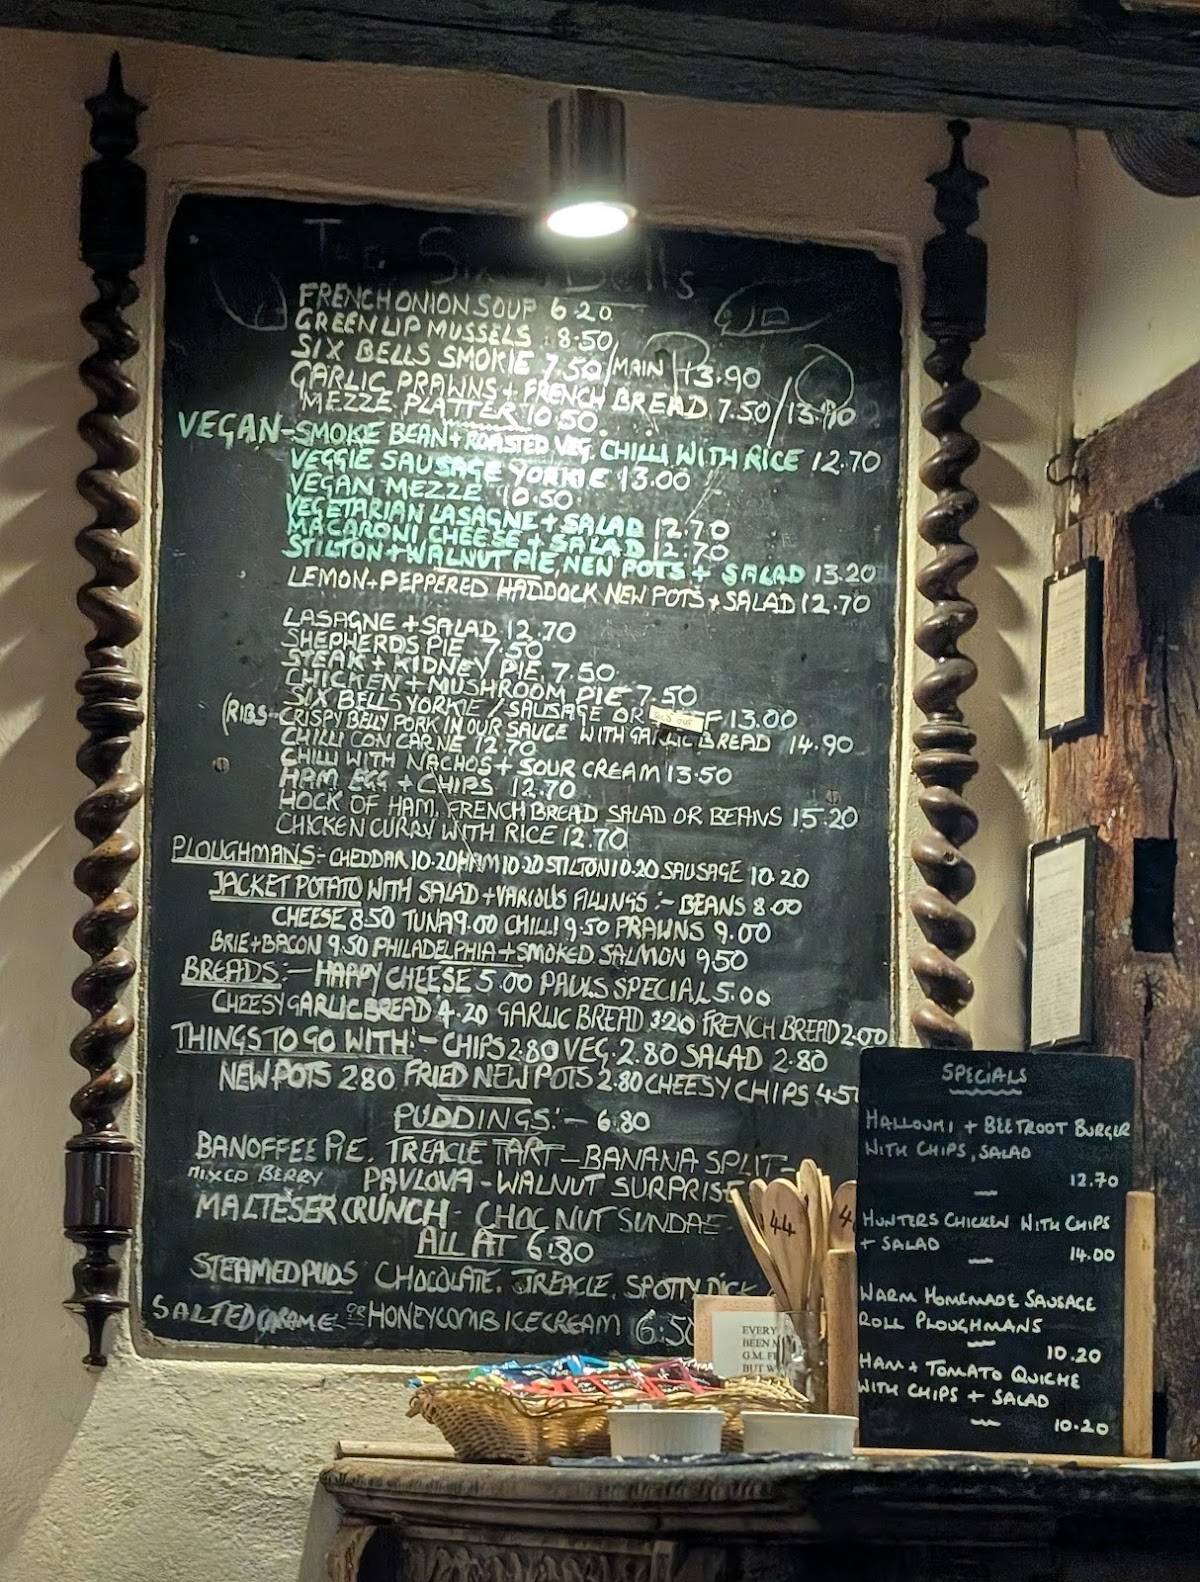 The Six Bells
FRENCH ONION SOUP 6.20
GREEN LIP MUSSELS 8.50
SIX BELLS SMOKIE 7.50/MAIN 13.90
GARLIC PRAWNS + FRENCH BREAD 7.50/13.90
MEZZE PLATTER 10.50.
VEGAN-SMOKE BEAN + ROASTED VEG. CHILLI WITH RICE 12.70
VEGGIE SAUSAGE YORKIE 13.00
VEGAN MEZZE 10.50
VEGETARIAN LASAGNE + SALAD 12.70
MACARONI CHEESE + SALAD 12.70
STILTON + WALNUT PIE, NEW POTS + SALAD 13.20
LEMON + PEPPERED HADDOCK NEW POTS + SALAD 12.70
LASAGNE + SALAD 12.70
SHEPHERDS PIE 7.50
STEAK + KIDNEY PIE 7.50
CHICKEN + MUSHROOM PIE 7.50
SIX BELLS YORKIE / SAUSAGE OR F 13.00
(RIBS-CRISPY BELLY PORK IN OUR SAUCE WITH GARLIC BREAD 14.90
CHILLI CON CARNE 12.70
CHILLI WITH NACHOS + SOUR CREAM 13.50
HAM EGG + CHIPS 12.70
HOCK OF HAM, FRENCH BREAD SALAD OR BEANS 15.20
CHICKEN CURRY WITH RICE 12.70
PLOUGHMANS:- CHEDDAR 10.20 HAM 10.20 STILTON 10.20 SAUSAGE 10.20
JACKET POTATO WITH SALAD + VARIOUS FILLINGS :- BEANS 8.00
CHEESE 8.50 TUNA 9.00 CHILLI 9.50 PRAWNS 9.00
BRIE + BACON 9.50 PHILADELPHIA + SMOKED SALMON 9.50
BREADS:- HAPPY CHEESE 5.00 PAULS SPECIAL 5.00
CHEESY GARLIC BREAD 4.20 GARLIC BREAD 3.20 FRENCH BREAD 2.00
THINGS TO GO WITH:- CHIPS 2.80 VEG. 2.80 SALAD 2.80
NEW POTS 2.80 FRIED NEW POTS 2.80 CHEESY CHIPS 4.5
PUDDINGS:- 6.80
BANOFFEE PIE. TREACLE TART - BANANA SPLIT-
MIXED BERRY PAVLOVA - WALNUT SURPRISE
MALTESER CRUNCH - CHOC NUT SUNDAE
ALL AT 6.80
STEAMED PUDS CHOCOLATE. TREACLE. SPOTTY DICK
SALTED CARAMEL OR HONEYCOMB ICE CREAM 6.50
44
4
EVERY
BEEN
G.M. F
BUT W
SPECIALS
HALLOUMI + BEETROOT BURGER
WITH CHIPS, SALAD
12.70
HUNTERS CHICKEN WITH CHIPS
+ SALAD
14.00
WARM HOMEMADE SAUSAGE
ROLL PLOUGHMANS
10.20
HAM + TOMATO QUICHE
WITH CHIPS + SALAD
10.20